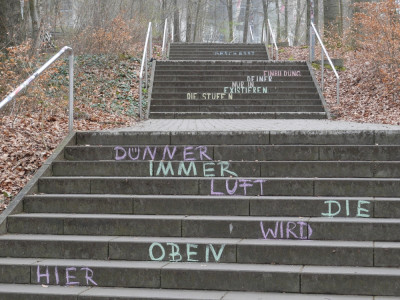 EINBILDUNG
DEINER
NUR IN
EXISTIEREN
DIE STUFEN
DÜNNER
IMMER
LUFT
DIE
WIRD
OBEN
HIER